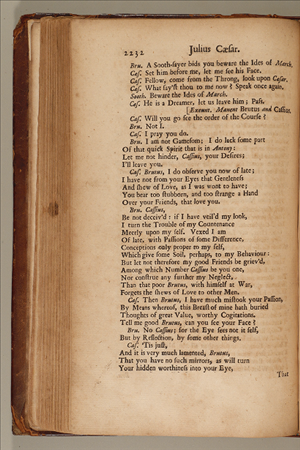 2232 Julius Cæsar.
Bru. A Sooth-sayer bids you beware the Ides of March.
Cæs. Set him before me, let me see his Face.
Cas. Fellow, come from the Throng, look upon Cæsar.
Cæs. What say'st thou to me now? Speak once again.
Sooth. Beware the Ides of March.
Cæs. He is a Dreamer, let us leave him; Pass.
[Exeunt. Manent Brutus and Cassius.
Cas. Will you go see the order of the Course?
Bru. Not I.
Cas. I pray you do.
Bru. I am not Gamesom; I do lack some part
Of that quick Spirit that is in Antony:
Let me not hinder, Cassius, your Desires;
I'll leave you.
Cas. Brutus, I do observe you now of late;
I have not from your Eyes that Gentleness
And shew of Love, as I was wont to have;
You bear too stubborn, and too strange a Hand
Over your Friends, that love you.
Bru. Cassius,
Be not deceiv'd: if I have veil'd my look,
I turn the Trouble of my Countenance
Meerly upon my self. Vexed I am
Of late, with Passions of some Difference,
Conceptions only proper to my self,
Which give some Soil, perhaps, to my Behaviour:
But let not therefore my good Friends be griev'd,
Among which Number Cassius be you one,
Nor construe any further my Neglect,
Than that poor Brutus, with himself at War,
Forgets the shews of Love to other Men.
Cas. Then Brutus, I have much mistook your Passion,
By Means whereof, this Breast of mine hath buried
Thoughts of great Value, worthy Cogitations.
Tell me good Brutus, can you see your Face?
Bru. No Cassius; for the Eye sees not it self,
But by Reflection, by some other things.
Cas. 'Tis just,
And it is very much lamented, Brutus,
That you have no such mirrors, as will turn
Your hidden worthiness into your Eye,
That